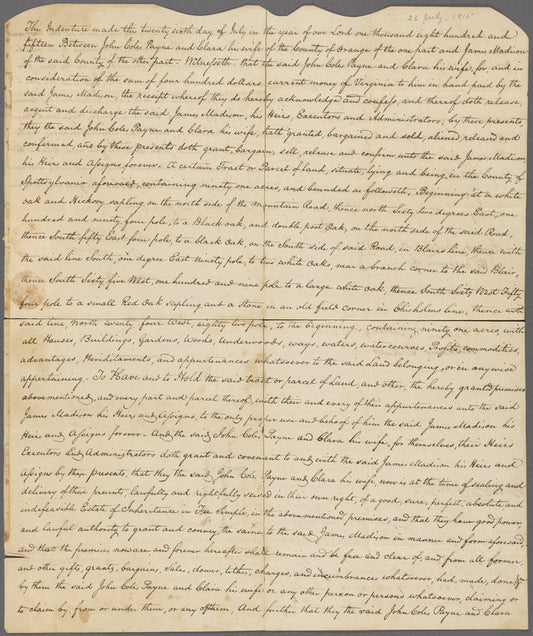 26 July, 1815
This Indenture made this twenty sixth day of July in the year of our Lord one thousand eight hundred and
fifteen Between John Coles Payne and Clara his wife of the County of Orange of the one part and James Madison
of the said County of the other part. Witnesseth that the said John Coles Payne and Clara his wife, for, and in
consideration of the sum of four hundred dollars current money of Virginia to him in hand paid by the
said James Madison, the receipt whereof they do hereby acknowledge and confess, and thereof doth release,
acquit and discharge the said James Madison, his Heirs, Executors and Administrators, by these presents,
they the said John Coles Payne and Clara his wife, hath granted, bargained and sold, aliened, released and
confirmed, and by these presents doth grant, bargain, sell, release and confirm unto the said James Madison
his Heirs and Assigns forever. A certain Tract or Parcel of land, situate, lying and being in the County of
Spottsylvania aforesaid, containing ninety one acres, and bounded as followeth, Beginning at a white
oak and Hickory sapling on the north side of the Mountain Road, thence north Sixty two degrees East, one
hundred and ninety four pole, to a Black oak, and double post Oak, on the north side of the said Road.
thence South fifty East four pole, to a black Oak, on the South side of said Road, in Blairs line, thence with
the said line South, one degree East Ninety pole, to two white Oaks, near a branch corner to the said Blair,
thence South Sixty five West, one hundred and nine pole to a large white oak, thence South Sixty West Fifty
four pole to a small Red Oak sapling and a Stone in an old field corner in Chisholms line, thence with
said line, North twenty four West, eighty two pole, to the beginning, containing ninety one acres, with
all Houses, Buildings, Gardens, Woods, Underwoods, ways, waters, watercourses, Profits, commodities,
advantages, Hereditaments, and appurtenances whatsoever to the said Land belonging, or in any wise
appertaining. To Have and to Hold the said tract or parcel of Land, and other, the hereby granted premises
abovementioned, and every part and parcel thereof, with their and every of their appurtenances unto the said
James Madison his Heirs and Assigns, to the only proper use and behoof of him the said James Madison his
Heirs and Assigns forever. And the said John Coles Payne and Clara his wife, for themselves, their Heirs
Executors and Administrators doth grant and covenant to and with the said James Madison his Heirs and
Assigns by these presents, that they the said John Coles Payne and Clara his wife, now is at the time of sealing and
delivery of these presents, lawfully and rightfully seised in their own right, of a good, sure, perfect, absolute and
indefeasible Estate of Inheritance in Fee Simple, in the abovementioned premises, and that they have good power,
and lawful authority to grant and convey the same to the said James Madison in manner and form aforesaid,
and that the premises now are and forever hereafter shall remain and be free and clear of, and from all former,
and other gifts, grants, bargains, sales, dower, tithes, charges, and incumbrances whatsoever, had, made, done
by them the said John Coles Payne and Clara his wife or any other person or persons whatsoever, claiming or
to claim by from or under them, or any of them, And further that they the said John Coles Payne and Clara